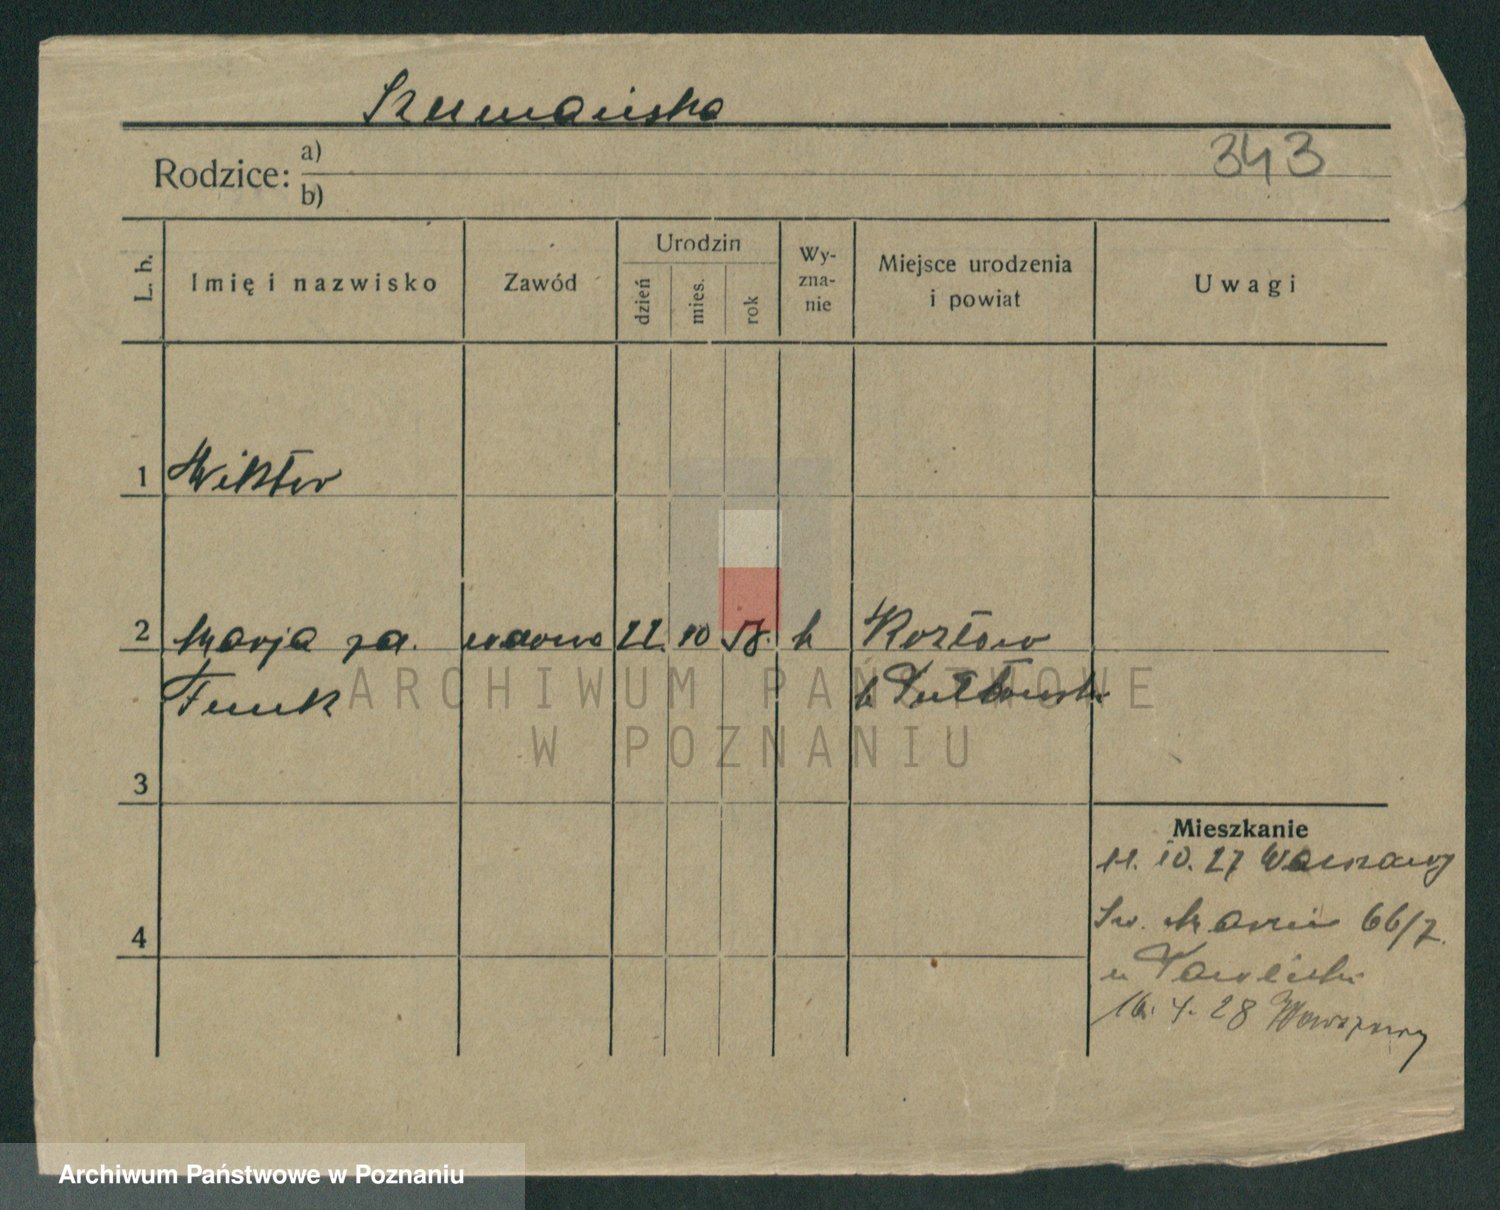 Szumańska
343
Rodzice: a)
b)
L. b.
Imię i nazwisko
Zawód
Urodzin
dzień
mies.
rok
Wy-
zna-
nie
Miejsce urodzenia
i powiat
Uwagi
1 Wiktor
2 Marja za. wdowa 22. 10 58. k Kozłów
Funk p Pułtowski
3
4
Mieszkanie
11. 10. 27 Warszawy
Św. Marcin 66/7.
u Pawlicki
16. 4. 28 Warszawy
ARCHIWUM PAŃSTWOWE
W POZNANIU
Archiwum Państwowe w Poznaniu